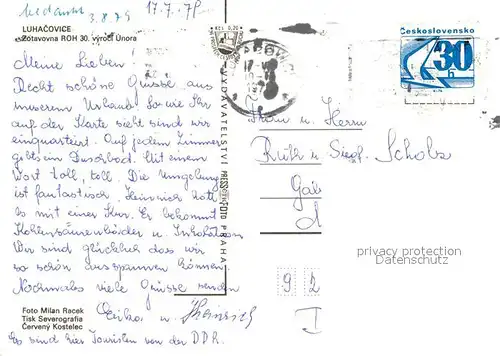 3.8.79 17.7.79
LUHAČOVICE
Zotavovna ROH 30. výročí Února
Meine Lieben!
Recht schöne Grüsse aus
unserem Urlaub. So wie Ihr
auf der Karte sieht sind wir
einquartiert. Auf jedem Zimmer
gibts ein Duschbad. Mit einem
Wort toll, toll. Die Umgebung
ist fantastisch. Heinrich hatt
es mit einer Kur. Er bekommt
Kohlensäurebäder u. Inhalation
Wir sind glücklich das wir
so schön ausspannen können.
Nochmals viele Grüsse senden
Erika u. Heinrich
Es sind hier Touristen von der DDR.
Foto Milan Racek
Tisk Severografia
Červený Kostelec
VYDAVATELSTVÍ PRESSFOTO PRAHA
Kčs 0,20
Československo
30
h
Frau u. Herrn
Ruth u. Siegf. Scholz
9 2
privacy protection
Datenschutz